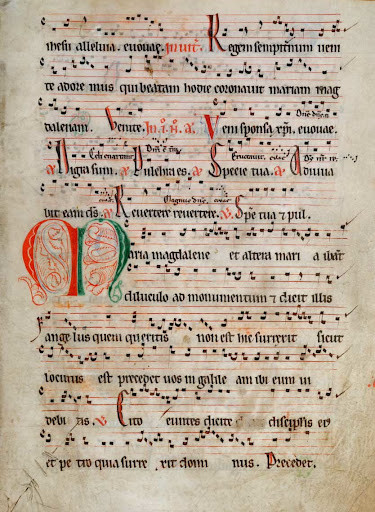 ihesu alleluia. euouae. Inuit. Regem sempiternum ueni
te adore mus qui beatam hodie coronauit mariam mag
dalenam. Venite. In .i. n. a. Veni sponsa xpi. euouae.
a. Nigra sum. a. Pulchra es. a. Specie tua. a. Adiuua
bit eam. Reuertere reuertere. Specie tua & pul.
Maria magdalene et altera mari a ibat
diluculo ad monumentum & dicit illis
angelus quem queritis non est hic surrexit sicut
locutus est precedet uos in galile am ibi eum ui
debi tis. V. Cito euntes dicite discipulis ei
et pe tro quia surre xit domi nus. Precedet.